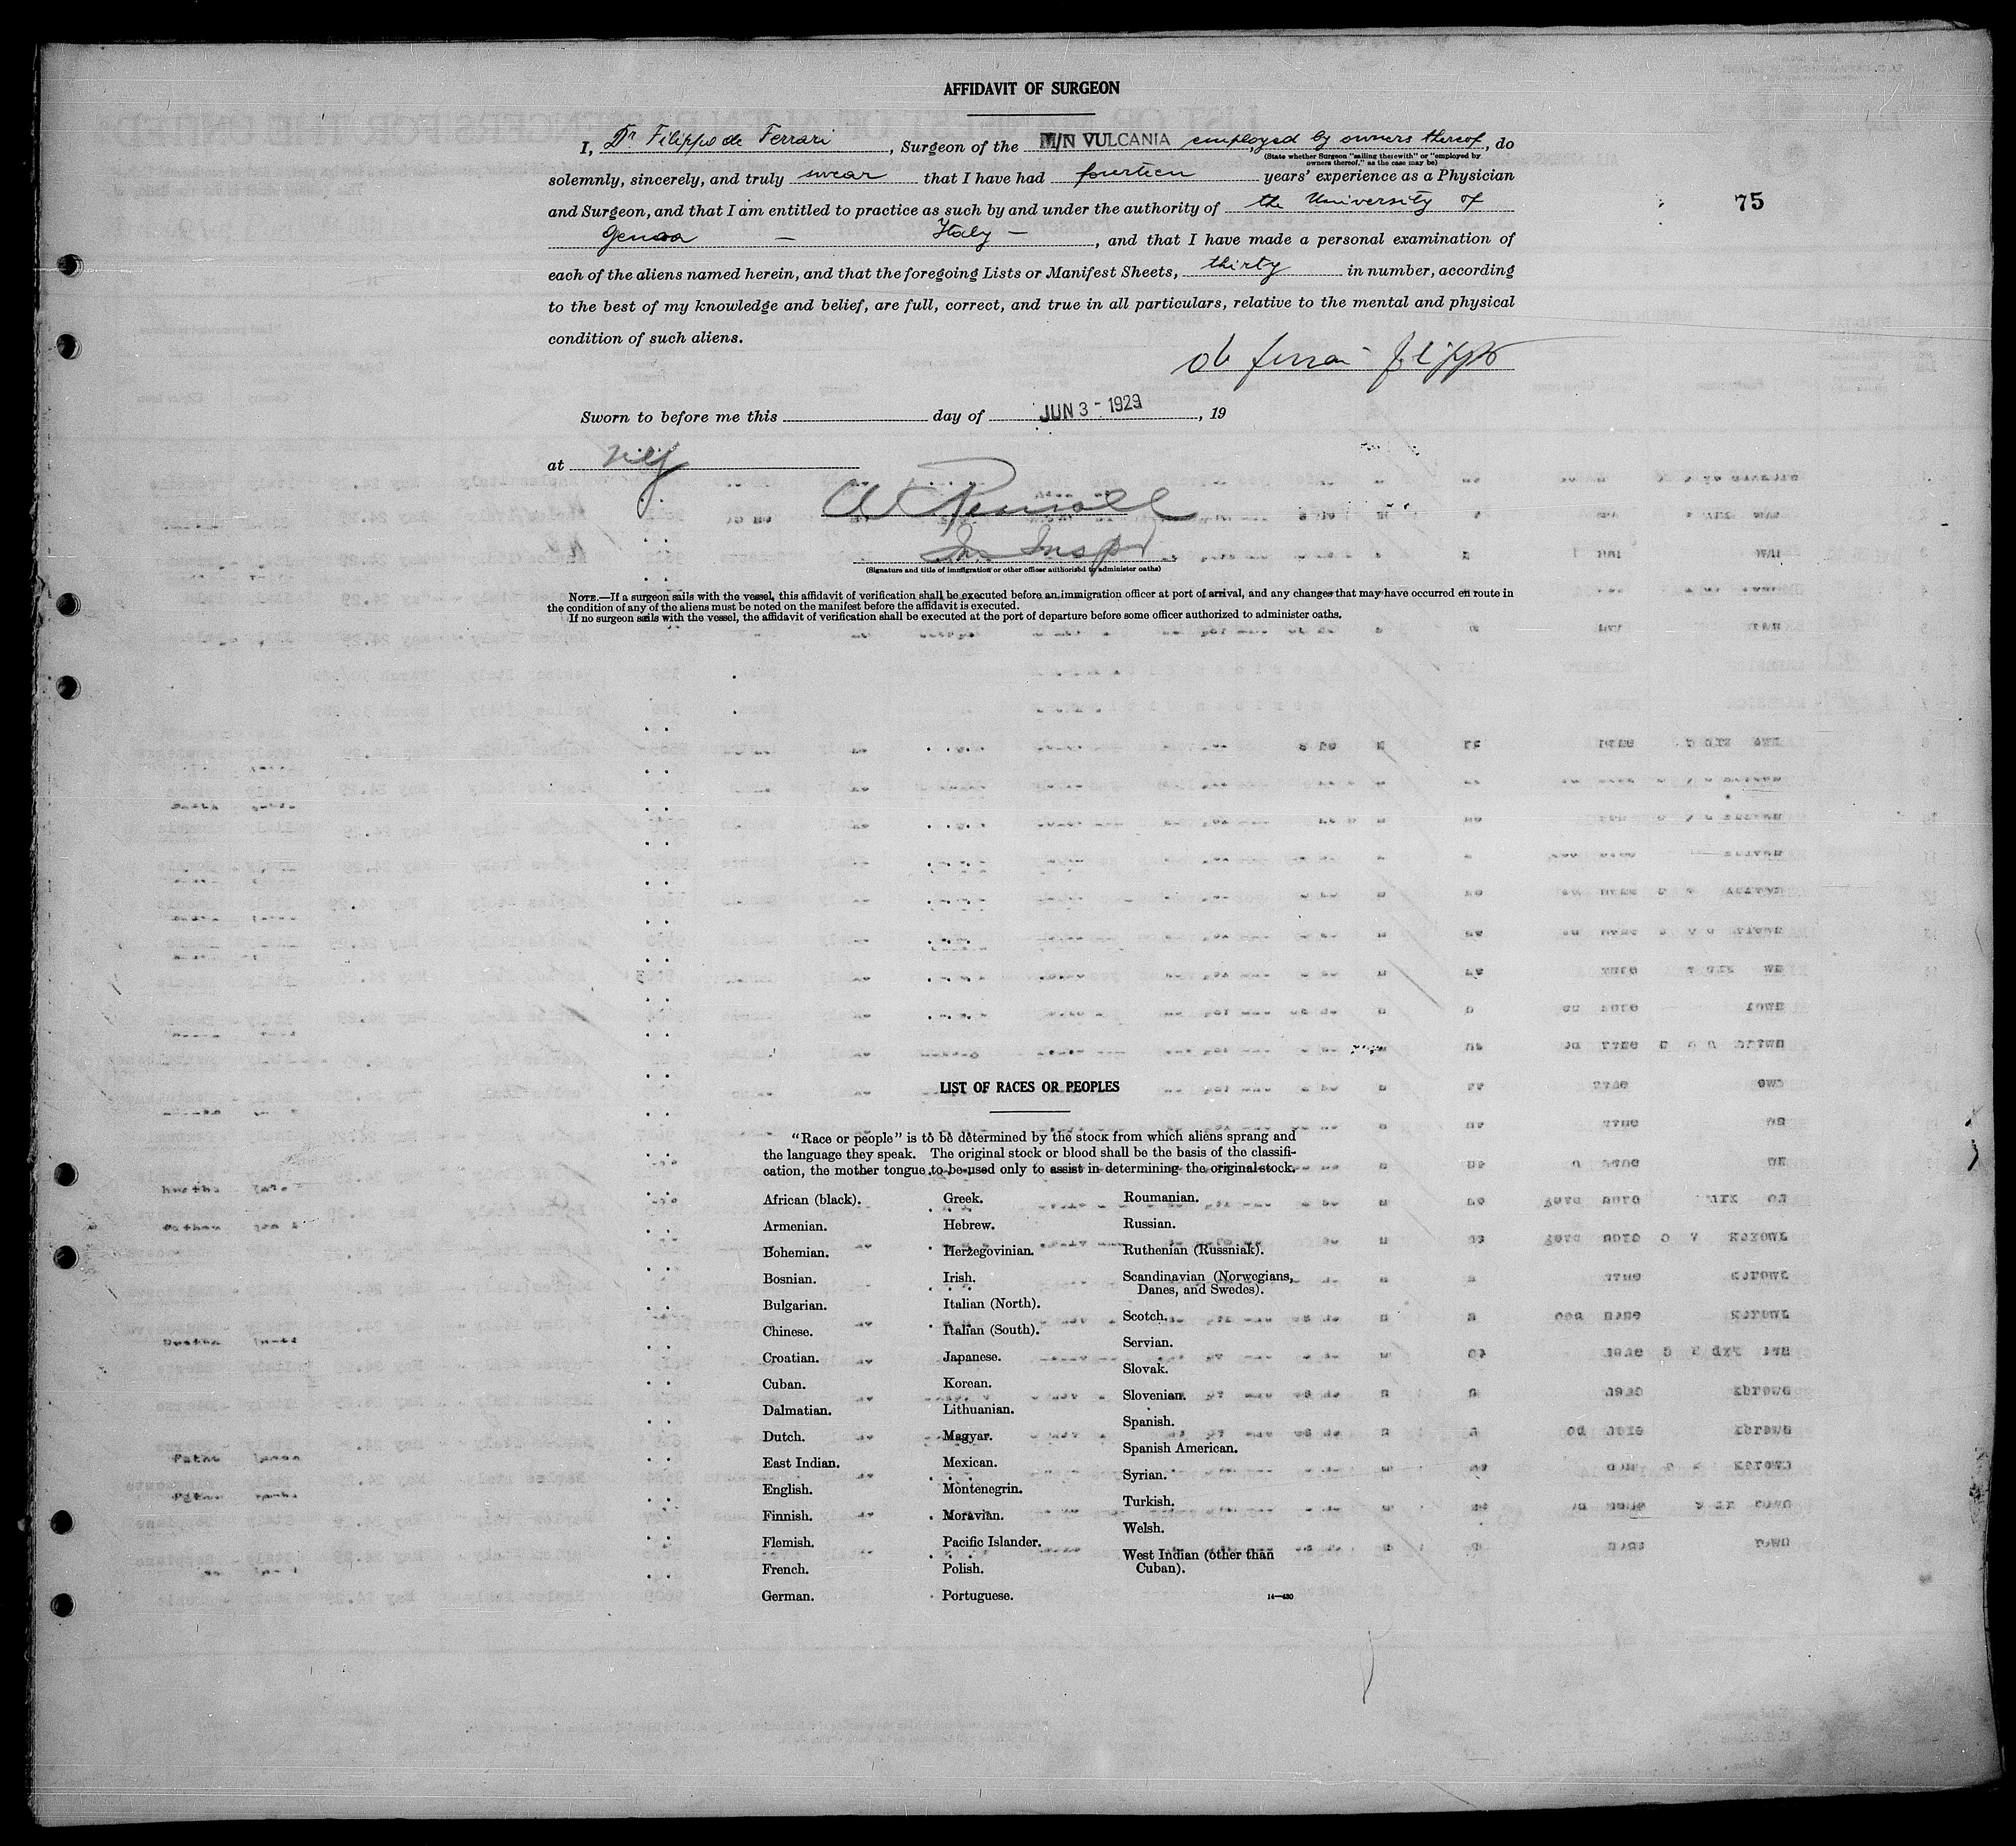 AFFIDAVIT OF SURGEON
I, Dr Filippo de Ferrari, Surgeon of the M/N VULCANIA employed by owners thereof, do
(State whether Surgeon "sailing therewith" or "employed by
owners thereof," as the case may be)
solemnly, sincerely, and truly swear that I have had fourteen years' experience as a Physician
75
and Surgeon, and that I am entitled to practice as such by and under the authority of the University of
Genoa — Italy —, and that I have made a personal examination of
each of the aliens named herein, and that the foregoing Lists or Manifest Sheets, thirty in number, according
to the best of my knowledge and belief, are full, correct, and true in all particulars, relative to the mental and physical
condition of such aliens.
de Ferrari Filippo
Sworn to before me this day of JUN 3 - 1929, 19
at
Im Insp
(Signature and title of immigration or other officer authorized to administer oaths)
NOTE.—If a surgeon sails with the vessel, this affidavit of verification shall be executed before an immigration officer at port of arrival, and any changes that may have occurred en route in
the condition of any of the aliens must be noted on the manifest before the affidavit is executed.
If no surgeon sails with the vessel, the affidavit of verification shall be executed at the port of departure before some officer authorized to administer oaths.
LIST OF RACES OR PEOPLES
"Race or people" is to be determined by the stock from which aliens sprang and
the language they speak. The original stock or blood shall be the basis of the classifi-
cation, the mother tongue to be used only to assist in determining the original stock.
African (black).
Armenian.
Bohemian.
Bosnian.
Bulgarian.
Chinese.
Croatian.
Cuban.
Dalmatian.
Dutch.
East Indian.
English.
Finnish.
Flemish.
French.
German.
Greek.
Hebrew.
Herzegovinian.
Irish.
Italian (North).
Italian (South).
Japanese.
Korean.
Lithuanian.
Magyar.
Mexican.
Montenegrin.
Moravian.
Pacific Islander.
Polish.
Portuguese.
Roumanian.
Russian.
Ruthenian (Russniak).
Scandinavian (Norwegians,
Danes, and Swedes).
Scotch.
Servian.
Slovak.
Slovenian.
Spanish.
Spanish American.
Syrian.
Turkish.
Welsh.
West Indian (other than
Cuban).
14—430